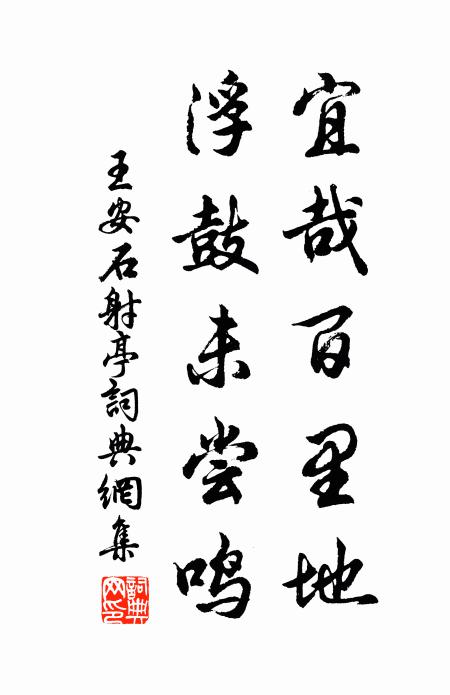 宜哉百里地
浮鼓未尝鳴
王安石射亭詞典網集
詞典網印